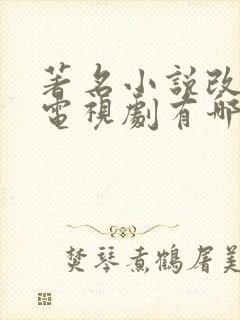 著名小說改
電視劇有哪
焚琴煮鶴屠美